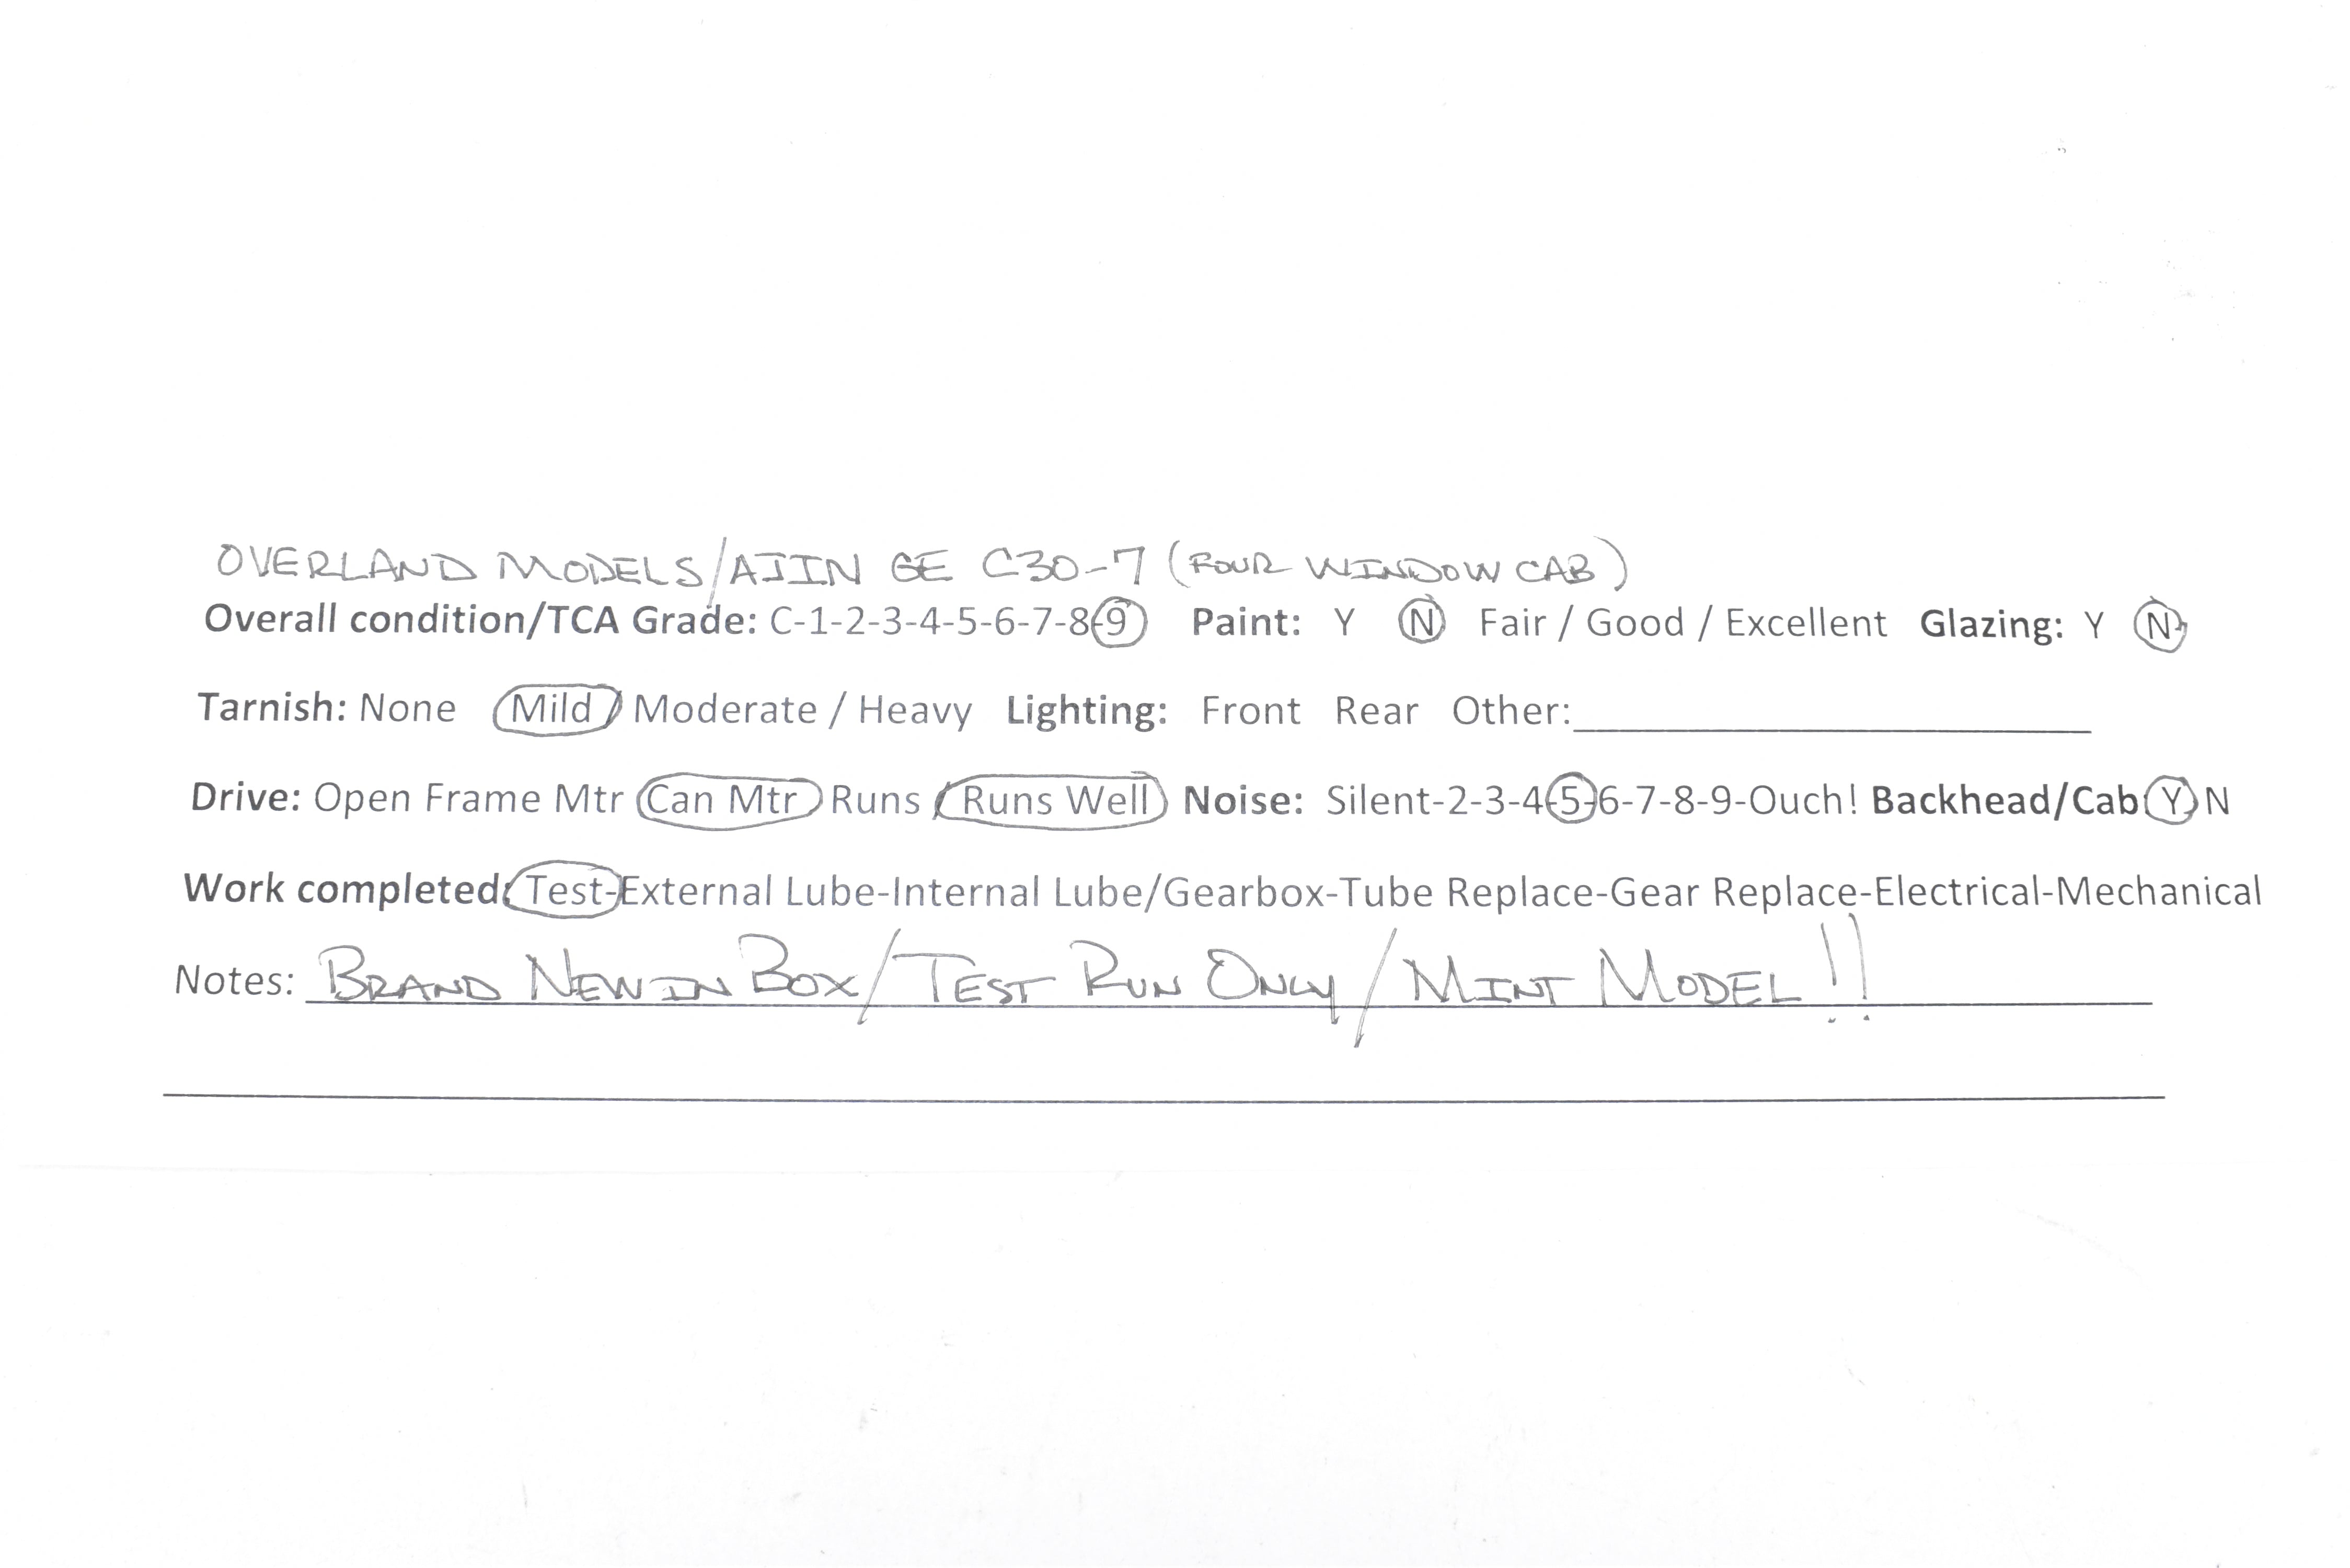 OVERLAND MODELS/AJIN GE C30-7 (FOUR WINDOW CAB)
Overall condition/TCA Grade: C-1-2-3-4-5-6-7-8-9 Paint: Y N Fair / Good / Excellent Glazing: Y N
Tarnish: None Mild / Moderate / Heavy Lighting: Front Rear Other:
Drive: Open Frame Mtr Can Mtr Runs / Runs Well Noise: Silent-2-3-4-5-6-7-8-9-Ouch! Backhead/Cab Y N
Work completed: Test-External Lube-Internal Lube/Gearbox-Tube Replace-Gear Replace-Electrical-Mechanical
Notes: BRAND NEW IN BOX/TEST RUN ONLY/MINT MODEL!!